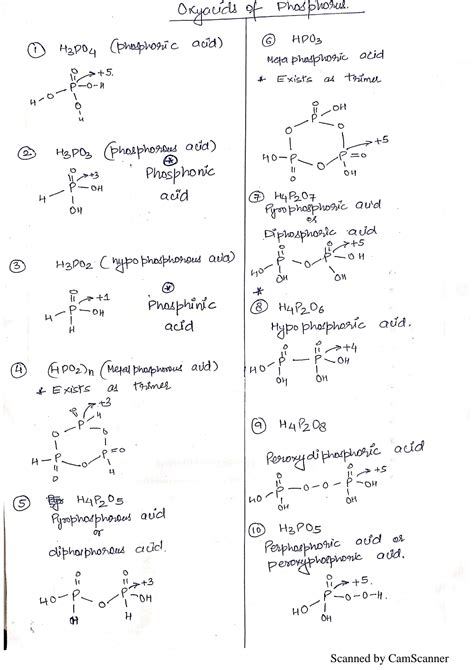 Oxyacids of Phosphorus.
① H3PO4 (phosphoric acid)
O
+5.
H-O-P-O-H
O
H
② H3PO3 (phosphorous acid)
Phosphonic
acid
O
+3
H-P-OH
OH
③ H3PO2 (hypophosphorous acid)
Phosphinic
acid
O
+1
H-P-OH
H
④ (HPO2)n (Metaphosphorous acid)
* Exists as trimer
+3
P H
O O
H-P P=O
O O H
⑤ H4P2O5
Pyrophosphorous acid
or
diphosphorous acid.
O O +3
HO-P-O-P-OH
OH H
⑥ HPO3
Metaphosphoric acid
* Exists as trimer
O
P OH
O O +5
HO-P P=O
O O OH
⑦ H4P2O7
Pyrophosphoric acid
or
Diphosphoric acid
O O +5
HO-P-O-P-OH
OH OH
*
⑧ H4P2O6
Hypophosphoric acid.
O O +4
HO-P-P-OH
OH OH
⑨ H4P2O8
Peroxydiphosphoric acid
O O +5
HO-P-O-O-P-OH
OH OH
⑩ H3PO5
Perphosphoric acid or
peroxyphosphoric acid.
O +5.
HO-P-O-O-H.
OH
Scanned by CamScanner